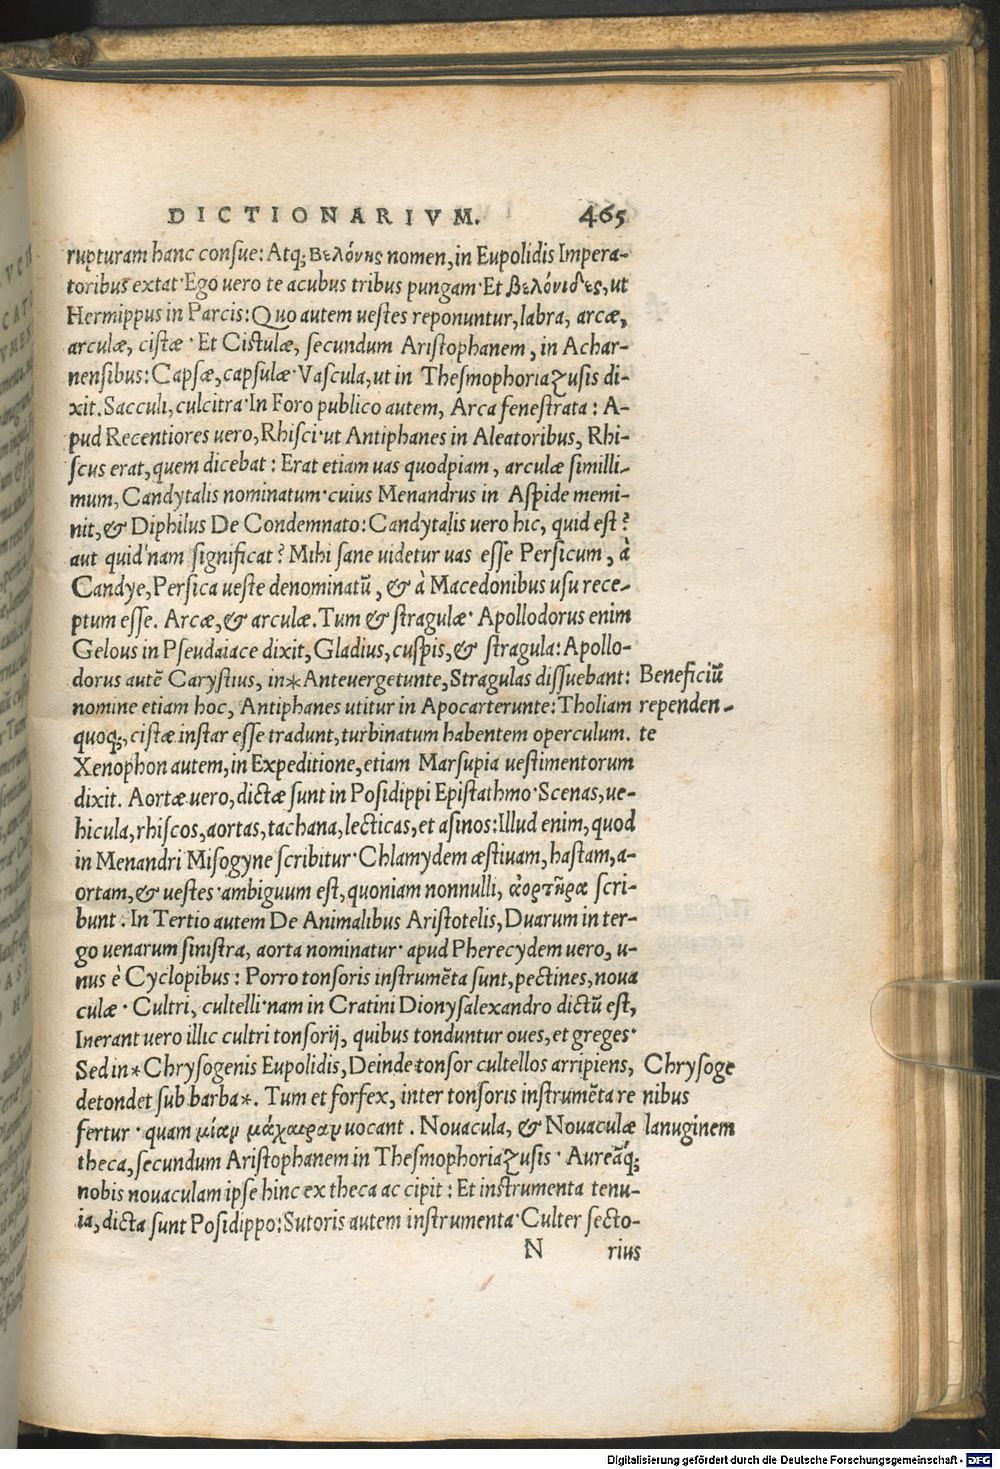 DICTIONARIVM. 465
rupturam hanc consue: Atq; Βελόνης nomen, in Eupolidis Impera-
toribus extat· Ego uero te acubus tribus pungam· Et βελόνιδες, ut
Hermippus in Parcis: Quo autem uestes reponuntur, labra, arcæ,
arculæ, cistæ· Et Cistulæ, secundum Aristophanem, in Achar-
nensibus: Capsæ, capsulæ· Vascula, ut in Thesmophoriazusis di-
xit. Sacculi, culcitra· In Foro publico autem, Arca fenestrata: A-
pud Recentiores uero, Rhisci· ut Antiphanes in Aleatoribus, Rhi-
scus erat, quem dicebat: Erat etiam uas quodpiam, arculæ simili-
mum, Candytalis nominatum· cuius Menandrus in Aspide memi-
nit, & Diphilus De Condemnato: Candytalis uero hic, quid est?
aut quid'nam significat? Mihi sane uidetur uas esse Persicum, à
Candye, Persica ueste denominatũ, & à Macedonibus usu rece-
ptum esse. Arcæ, & arculæ. Tum & stragulæ· Apollodorus enim
Gelous in Pseudaiace dixit, Gladius, cuspis, & stragula: Apollo-
dorus autẽ Carystius, in* Anteuergetunte, Stragulas dissuebant: Beneficiũ
nomine etiam hoc, Antiphanes utitur in Apocarterunte: Tholiam rependen-
quoq;, cistæ instar esse tradunt, turbinatum habentem operculum. te
Xenophon autem, in Expeditione, etiam Marsupia uestimentorum
dixit. Aortæ uero, dictæ sunt in Posidippi Epistathmo· Scenas, ue-
hicula, rhiscos, aortas, tachana, lecticas, et asinos: Illud enim, quod
in Menandri Misogyne scribitur· Chlamydem æstiuam, hastam, a-
ortam, & uestes· ambiguum est, quoniam nonnulli, ἀορτῆρα scri-
bunt. In Tertio autem De Animalibus Aristotelis, Duarum in ter-
go uenarum sinistra, aorta nominatur· apud Pherecydem uero, u-
nus è Cyclopibus: Porro tonsoris instrumẽta sunt, pectines, noua
culæ· Cultri, cultelli· nam in Cratini Dionysalexandro dictũ est,
Inerant uero illic cultri tonsorij, quibus tonduntur oues, et greges·
Sed in* Chrysogenis Eupolidis, Deinde tonsor cultellos arripiens, Chrysoge
detondet sub barba*. Tum et forfex, inter tonsoris instrumẽta re nibus
fertur· quam μίαν μάχαιραν uocant. Nouacula, & Nouaculæ lanuginem
theca, secundum Aristophanem in Thesmophoriazusis· Aureãq;
nobis nouaculam ipse hinc ex theca ac cipit: Et instrumenta tenu-
ia, dicta sunt Posidippo: Sutoris autem instrumenta· Culter secto-
N rius
Digitalisierung gefördert durch die Deutsche Forschungsgemeinschaft - DFG